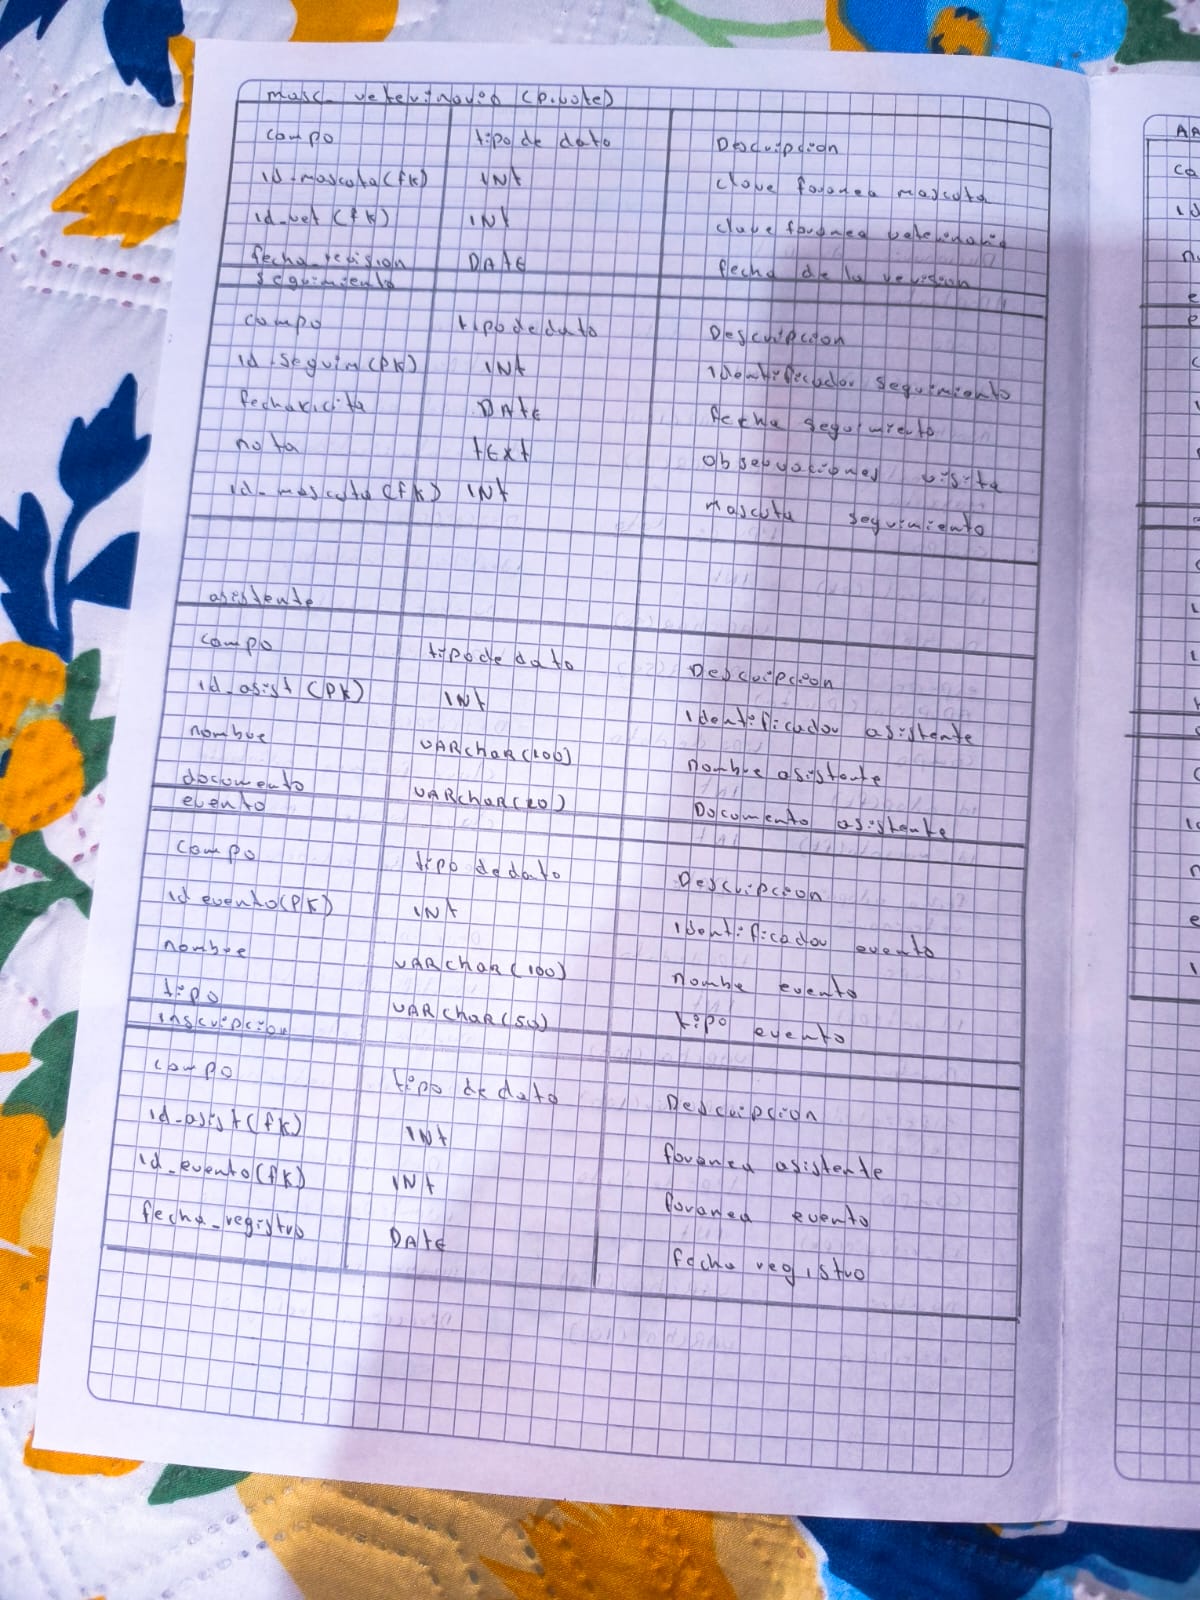 masc_veterinario (Pivote)
campo tipo de dato Descripcion
id_mascota(fk) INt clave foranea mascota
id_vet (fk) INt clave foranea veterinario
fecha_revision DATE fecha de la revision
seguimiento
campo tipo de dato Descripcion
id_seguim(PK) INt identificador seguimiento
DATE fecha seguimiento
nota tExt observaciones visita
id_mascota(fk) INt Mascota seguimiento
asistente
campo tipo de dato Descripcion
id_asist (PK) INt identificador asistente
nombre VARchaR(100) nombre asistente
documento VARchaR(20) Documento asistente
evento
campo tipo de dato Descripcion
id evento(PK) INt identificador evento
nombre VARchaR(100) nombe evento
tipo VARchaR(50) tipo evento
inscripcion
campo tipo de dato Descripcion
id_asist(fk) INt foranea asistente
id_evento(fk) INt foranea evento
fecha_registro DATE fecha registro